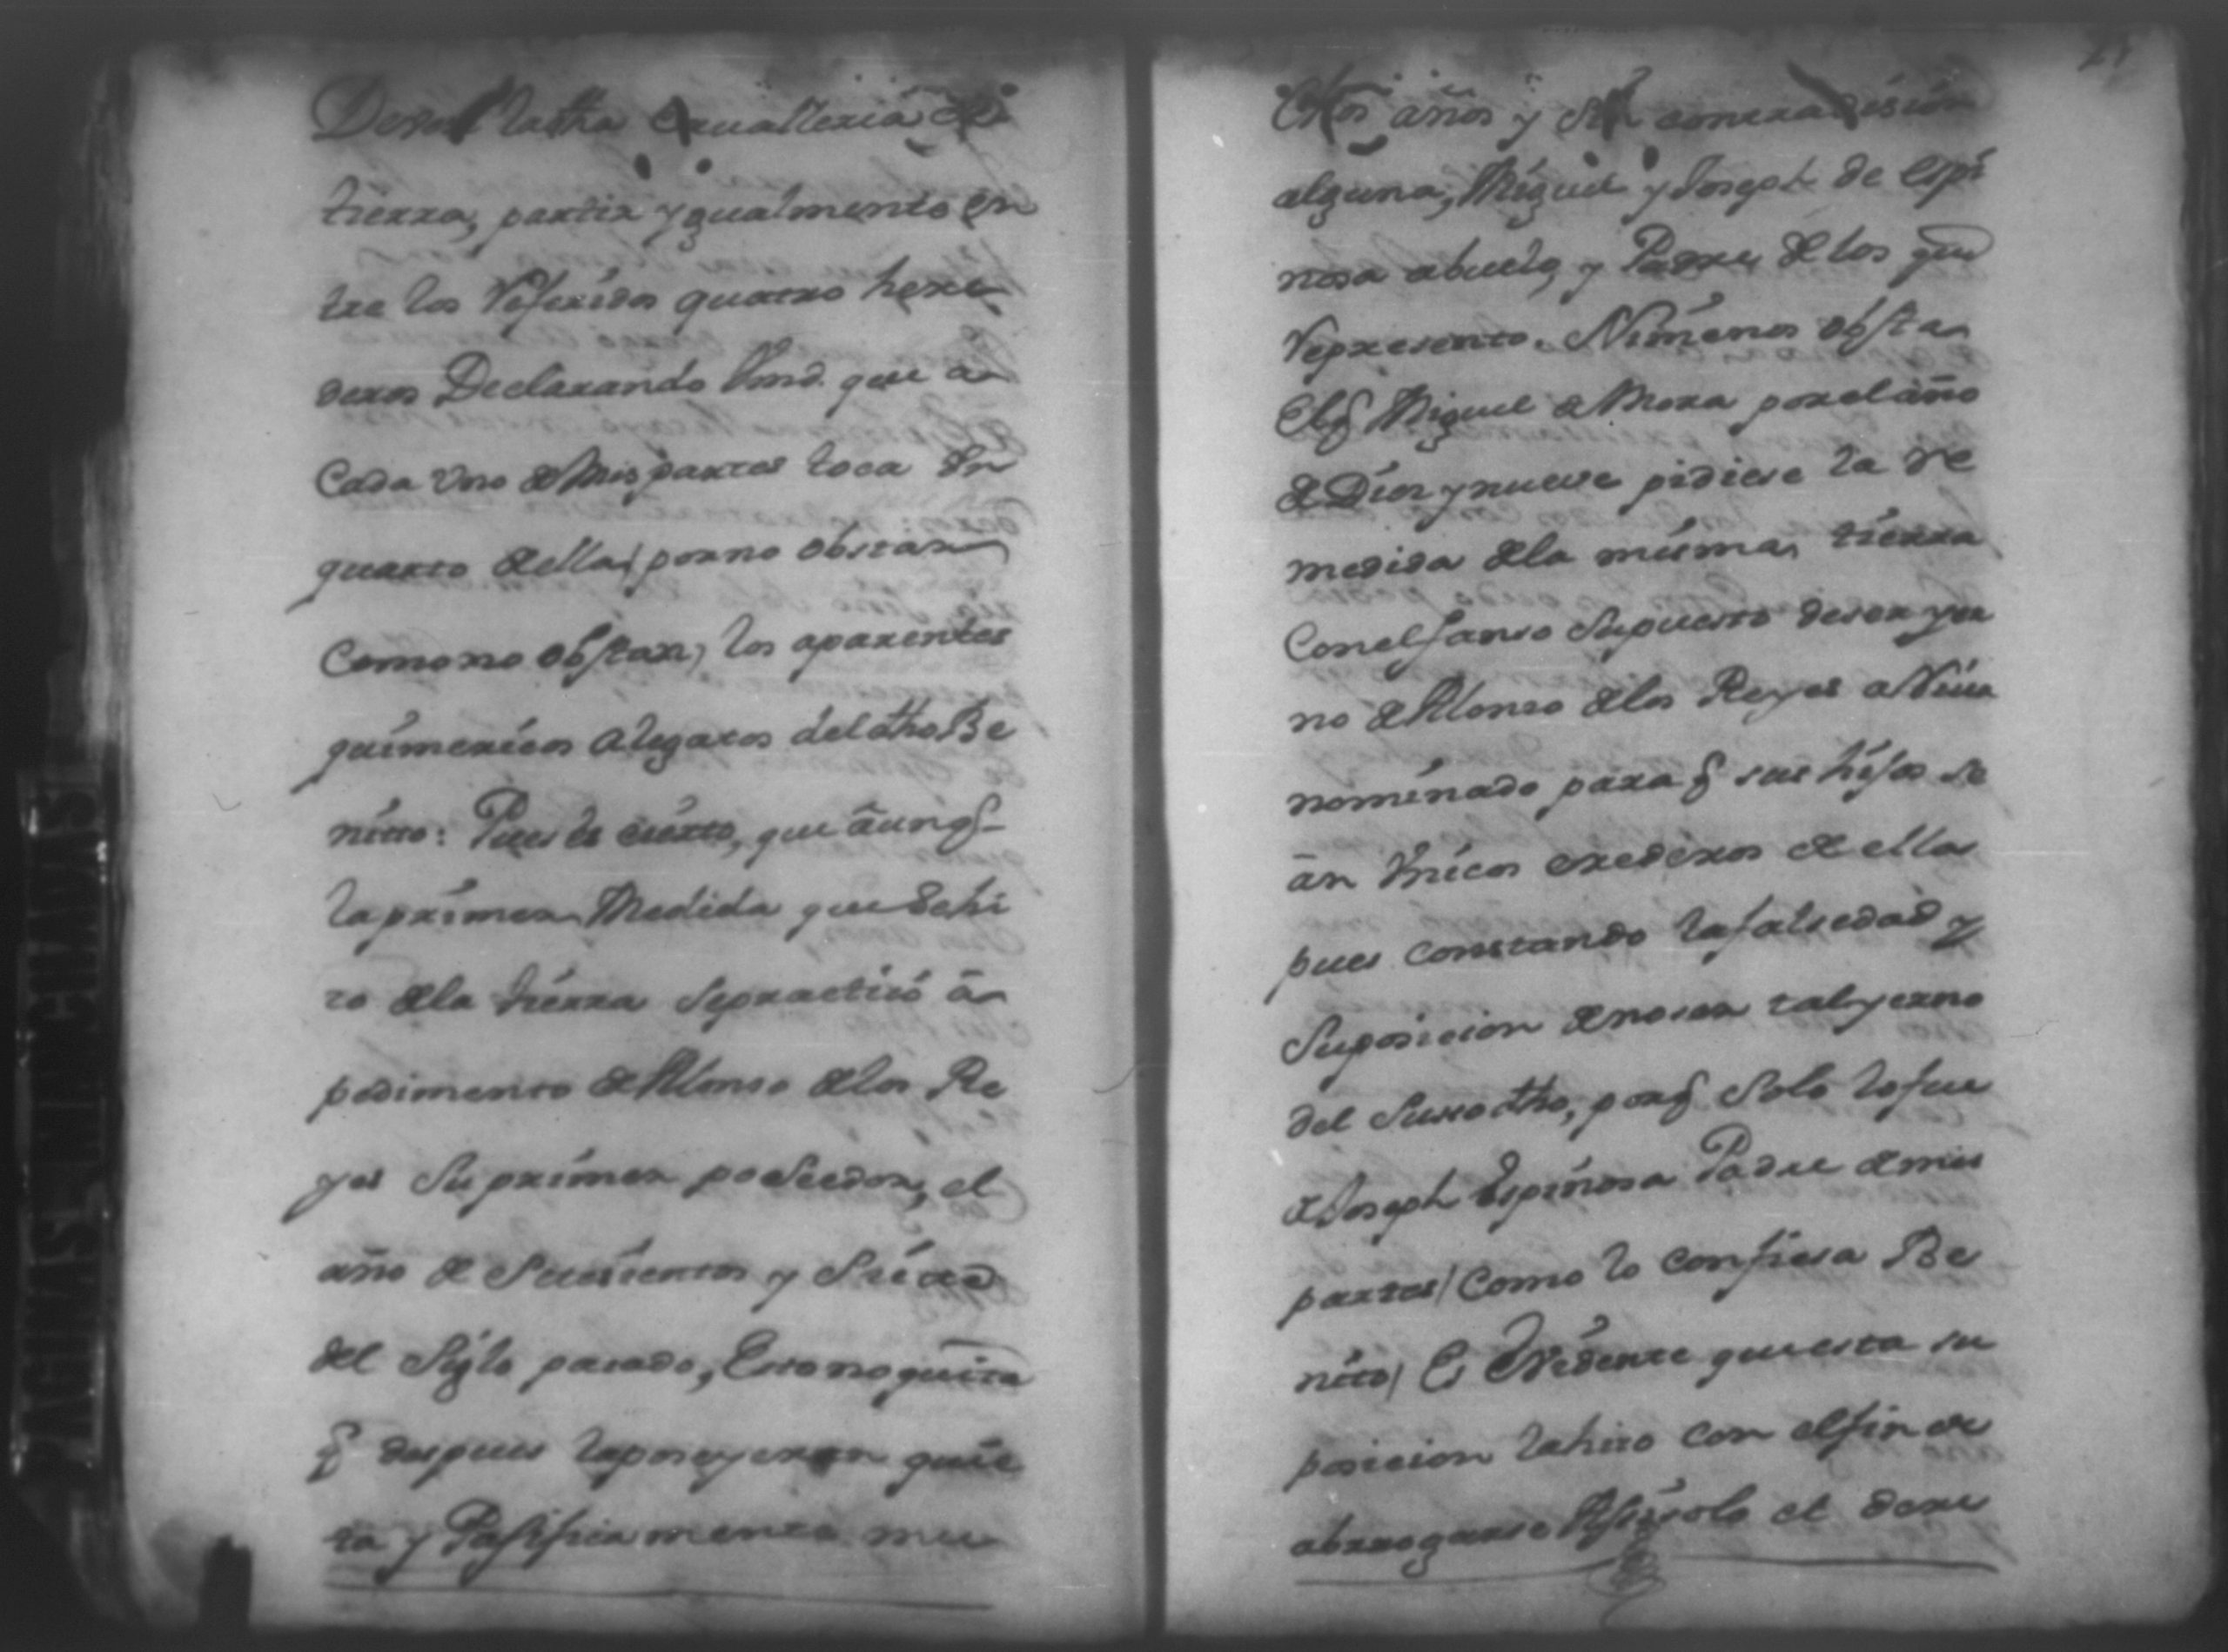 la dha Cavalleria de
tierra, partir ygualmente en
tre los Referidos quatro here
deros Declarando Vmd. que a
Cada vno de Mis partes toca Vn
quarto de ella, por no obstar
Como no obstan, los aparentes
quimericos alegatos del dho Be
nitto: Pues es cierto, que aunq
la primera Medida que se hi
zo de la tierra se practicó a
pedimento de Alonso de los Re
yes Su primer poseedor, el
año de Seiscientos y
del Siglo pasado, Esto no quita
q despues la poseyeran quie
ta y Pasificamente mu
chos años y sin contradision
alguna, Miguel y Joseph de Espi
nosa abuelo, y Padre de los que
Represento. Ni menos obsta
El q Miguel de Mora por el año
de Dies y nueve pidiese la re
medida de la misma tierra
Con el fanso Supuesto de ser yer
no de Alonso de los Reyes
nominado para q sus hijos se
an Vnicos erederos de ella
pues constando la falsedad y
Suposicion de no ser tal yerno
del Suso dho, porq Solo lo fue
de Joseph Espinosa Padre de mis
partes/ Como lo confiesa Be
nito/ Es Evidente que esta su
posicion la hizo con el fin de
abrrogarse Asi solo el dere